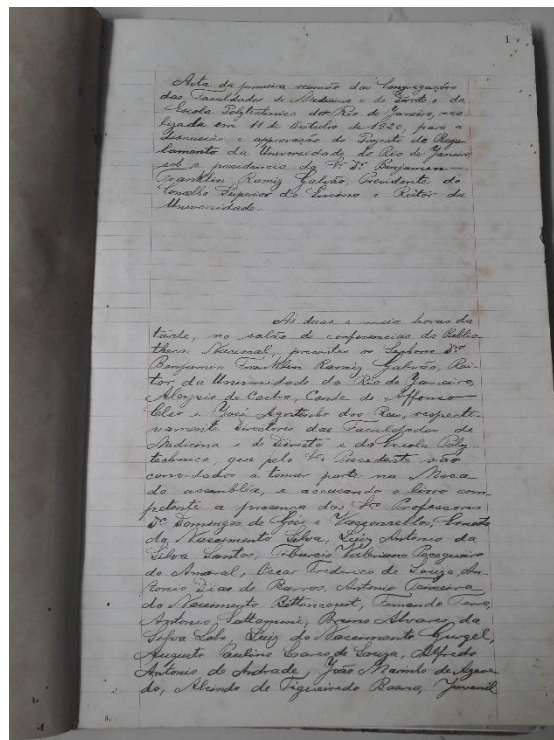 1
Acta da primeira reunião das Congregações
das Faculdades de Medicina e de Direito e da
Escola Polytechnica do Rio de Janeiro, rea-
lizada em 11 de Outubro de 1920, para a
discussão e approvação do Projecto do Regu-
lamento da Universidade do Rio de Janeiro,
sob a presidencia do Sr. Dr. Benjamin
Franklin Ramiz Galvão, Presidente do
Conselho Superior do Ensino e Reitor da
Universidade.
Ás duas e meia horas da
tarde, no salão de conferencias da Biblio-
theca Nacional, presentes os Senhores Dr.
Benjamin Franklin Ramiz Galvão, Rei-
tor da Universidade do Rio de Janeiro,
Aloysio de Castro, Conde de Affonso
Celso e José Agostinho dos Reis, respecti-
vamente Directores das Faculdades de
Medicina e de Direito e da Escola Poly-
technica, que pelo Sr. Presidente são
convidados a tomar parte na Mesa
da assembléa, e accusando o livro com-
petente a presença dos Srs. Professores
Dr. Domingos de Góes e Vasconcellos, Ernesto
do Nascimento Silva, Luiz Antonio da
Silva Santos, Tiburcio Valeriano Pecegueiro
do Amaral, Oscar Frederico de Souza, An-
tonio Dias de Barros, Antonio
do Nascimento Bittencourt, Fernando
Antonio Bruno Alvares da
Silva Lobo, Luiz do Nascimento Gurgel,
Augusto Paulino Soares de Souza, Alfredo
Antonio de Andrade, João Marinho de Azeve-
do, Alcindo de Figueiredo Baena, Juvenil